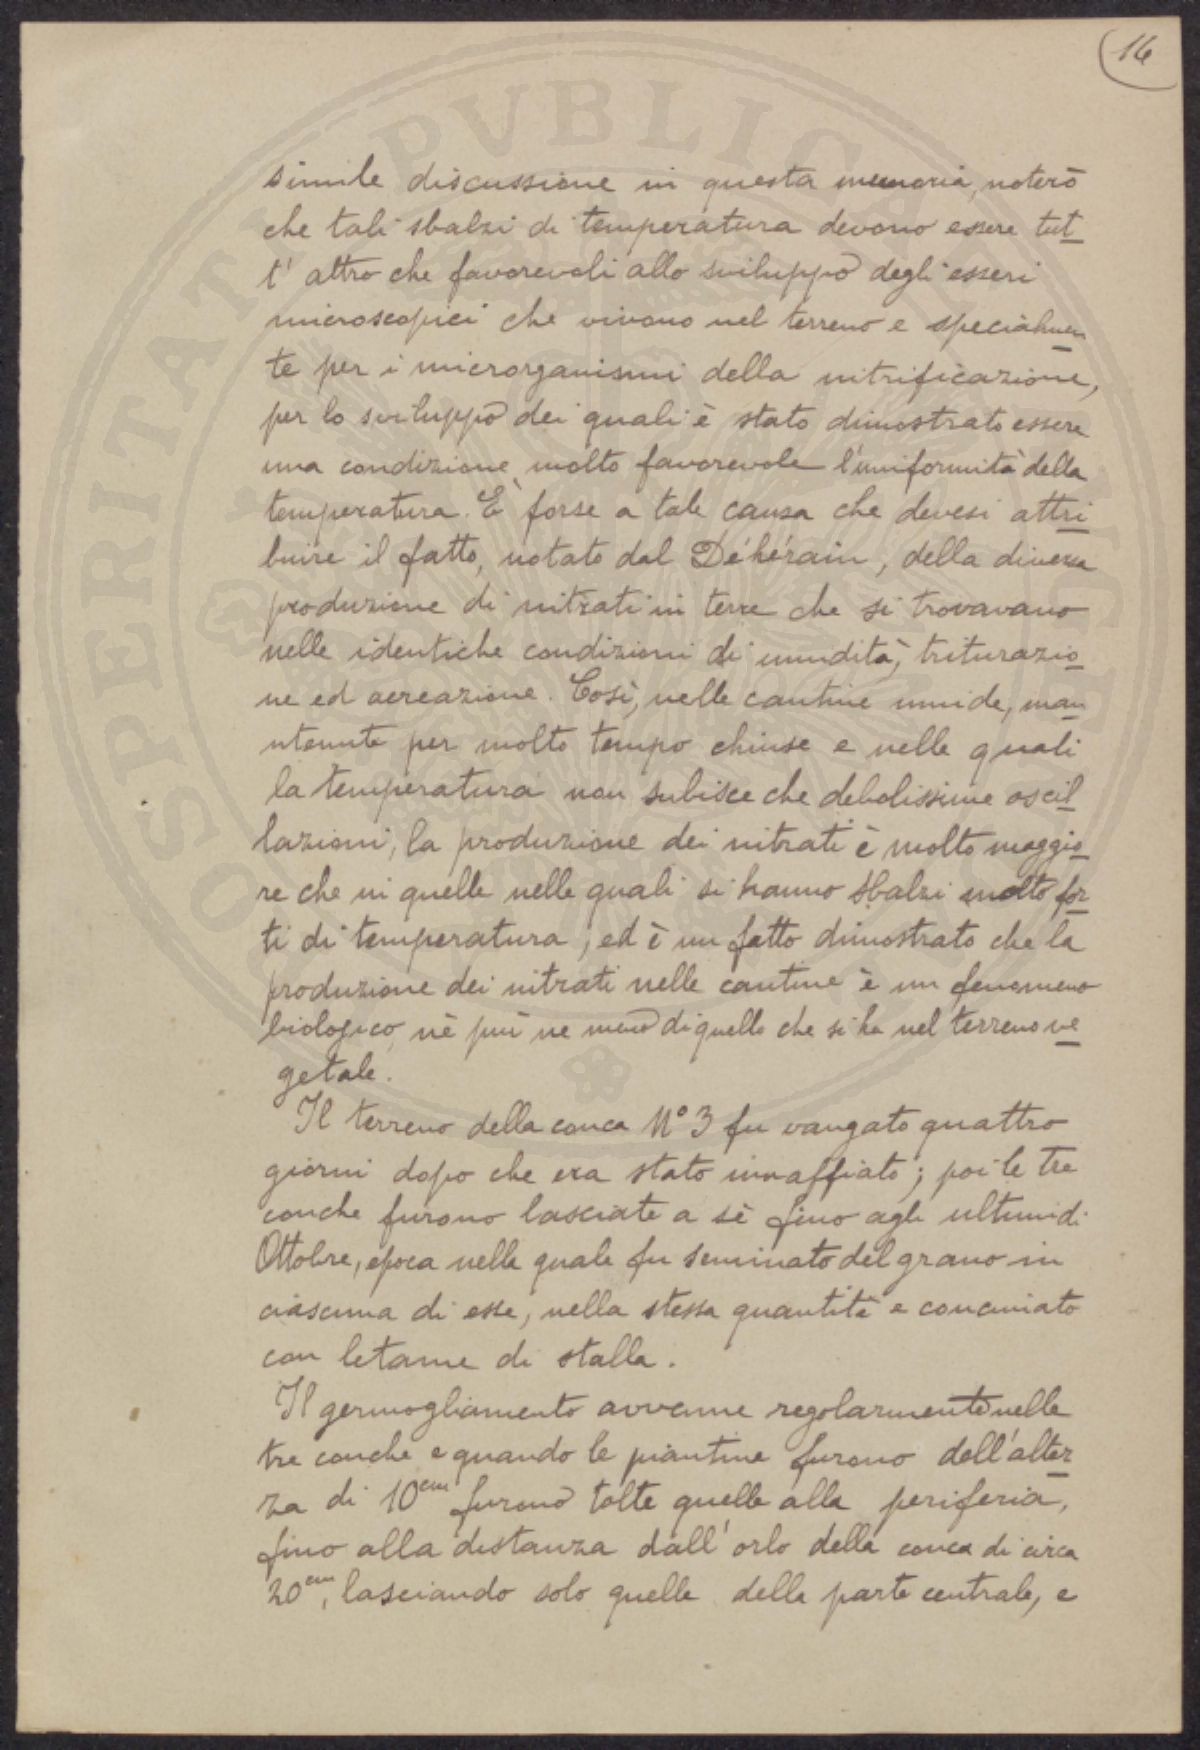 16
simile discussione in questa memoria, noterò
che tali sbalzi di temperatura devono essere tut_
t'altro che favorevoli allo sviluppo degli esseri
microscopici che vivono nel terreno e specialmen_
te per i microrganismi della nitrificazione,
per lo sviluppo dei quali è stato dimostrato essere
una condizione molto favorevole l'uniformità della
temperatura. È forse a tale causa che devesi attri_
buire il fatto, notato dal Déhérain, della diversa
produzione di nitrati in terre che si trovavano
nelle identiche condizioni di umidità, triturazio_
ne ed aereazione. Così, nelle cantine umide, man_
ntenute per molto tempo chiuse e nelle quali
la temperatura non subisce che debolissime oscil_
lazioni, la produzione dei nitrati è molto maggio_
re che in quelle nelle quali si hanno sbalzi molto for_
ti di temperatura, ed è un fatto dimostrato che la
produzione dei nitrati nelle cantine è un fenomeno
biologico, nè più ne meno di quello che si ha nel terreno ve_
getale.
Il terreno della conca N° 3 fu vangato quattro
giorni dopo che era stato innaffiato; poi le tre
conche furono lasciate a sè fino agli ultimi di
Ottobre, epoca nella quale fu seminato del grano in
ciascuna di esse, nella stessa quantità e concimato
con letame di stalla.
Il germogliamento avvenne regolarmente nelle
tre conche e quando le piantine furono dell'altez_
za di 10cm furono tolte quelle alla periferia,
fino alla distanza dall'orlo della conca di circa
20cm, lasciando solo quelle della parte centrale, e
PROSPERITATI PVBLICAE